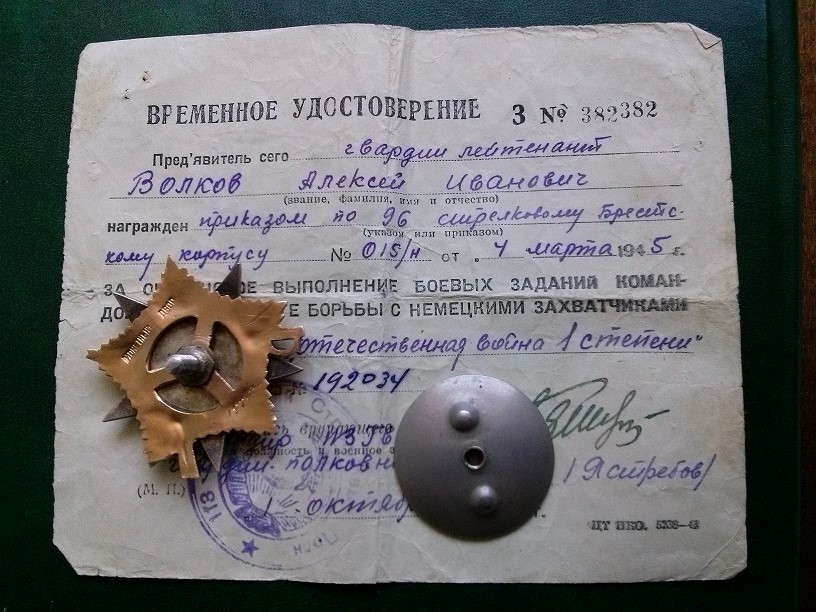 ВРЕМЕННОЕ УДОСТОВЕРЕНИЕ З № 382382
Пред'явитель сего гвардии лейтенант
Волков Алексей Иванович
(звание, фамилия, имя и отчество)
награжден приказом по 96 стрелковому Брестс-
(указом или приказом)
кому корпусу № 015/н от „4 марта 1945 г.
ЗА ВЫПОЛНЕНИЕ БОЕВЫХ ЗАДАНИЙ КОМАН-
ДО Е БОРЬБЫ С НЕМЕЦКИМИ ЗАХВАТЧИКАМИ
Отечественная война 1 степени"
№ 192034
вручающего
полковн
/Ястребов/
(М. П.)
1 октябр
ЦТ НКО.